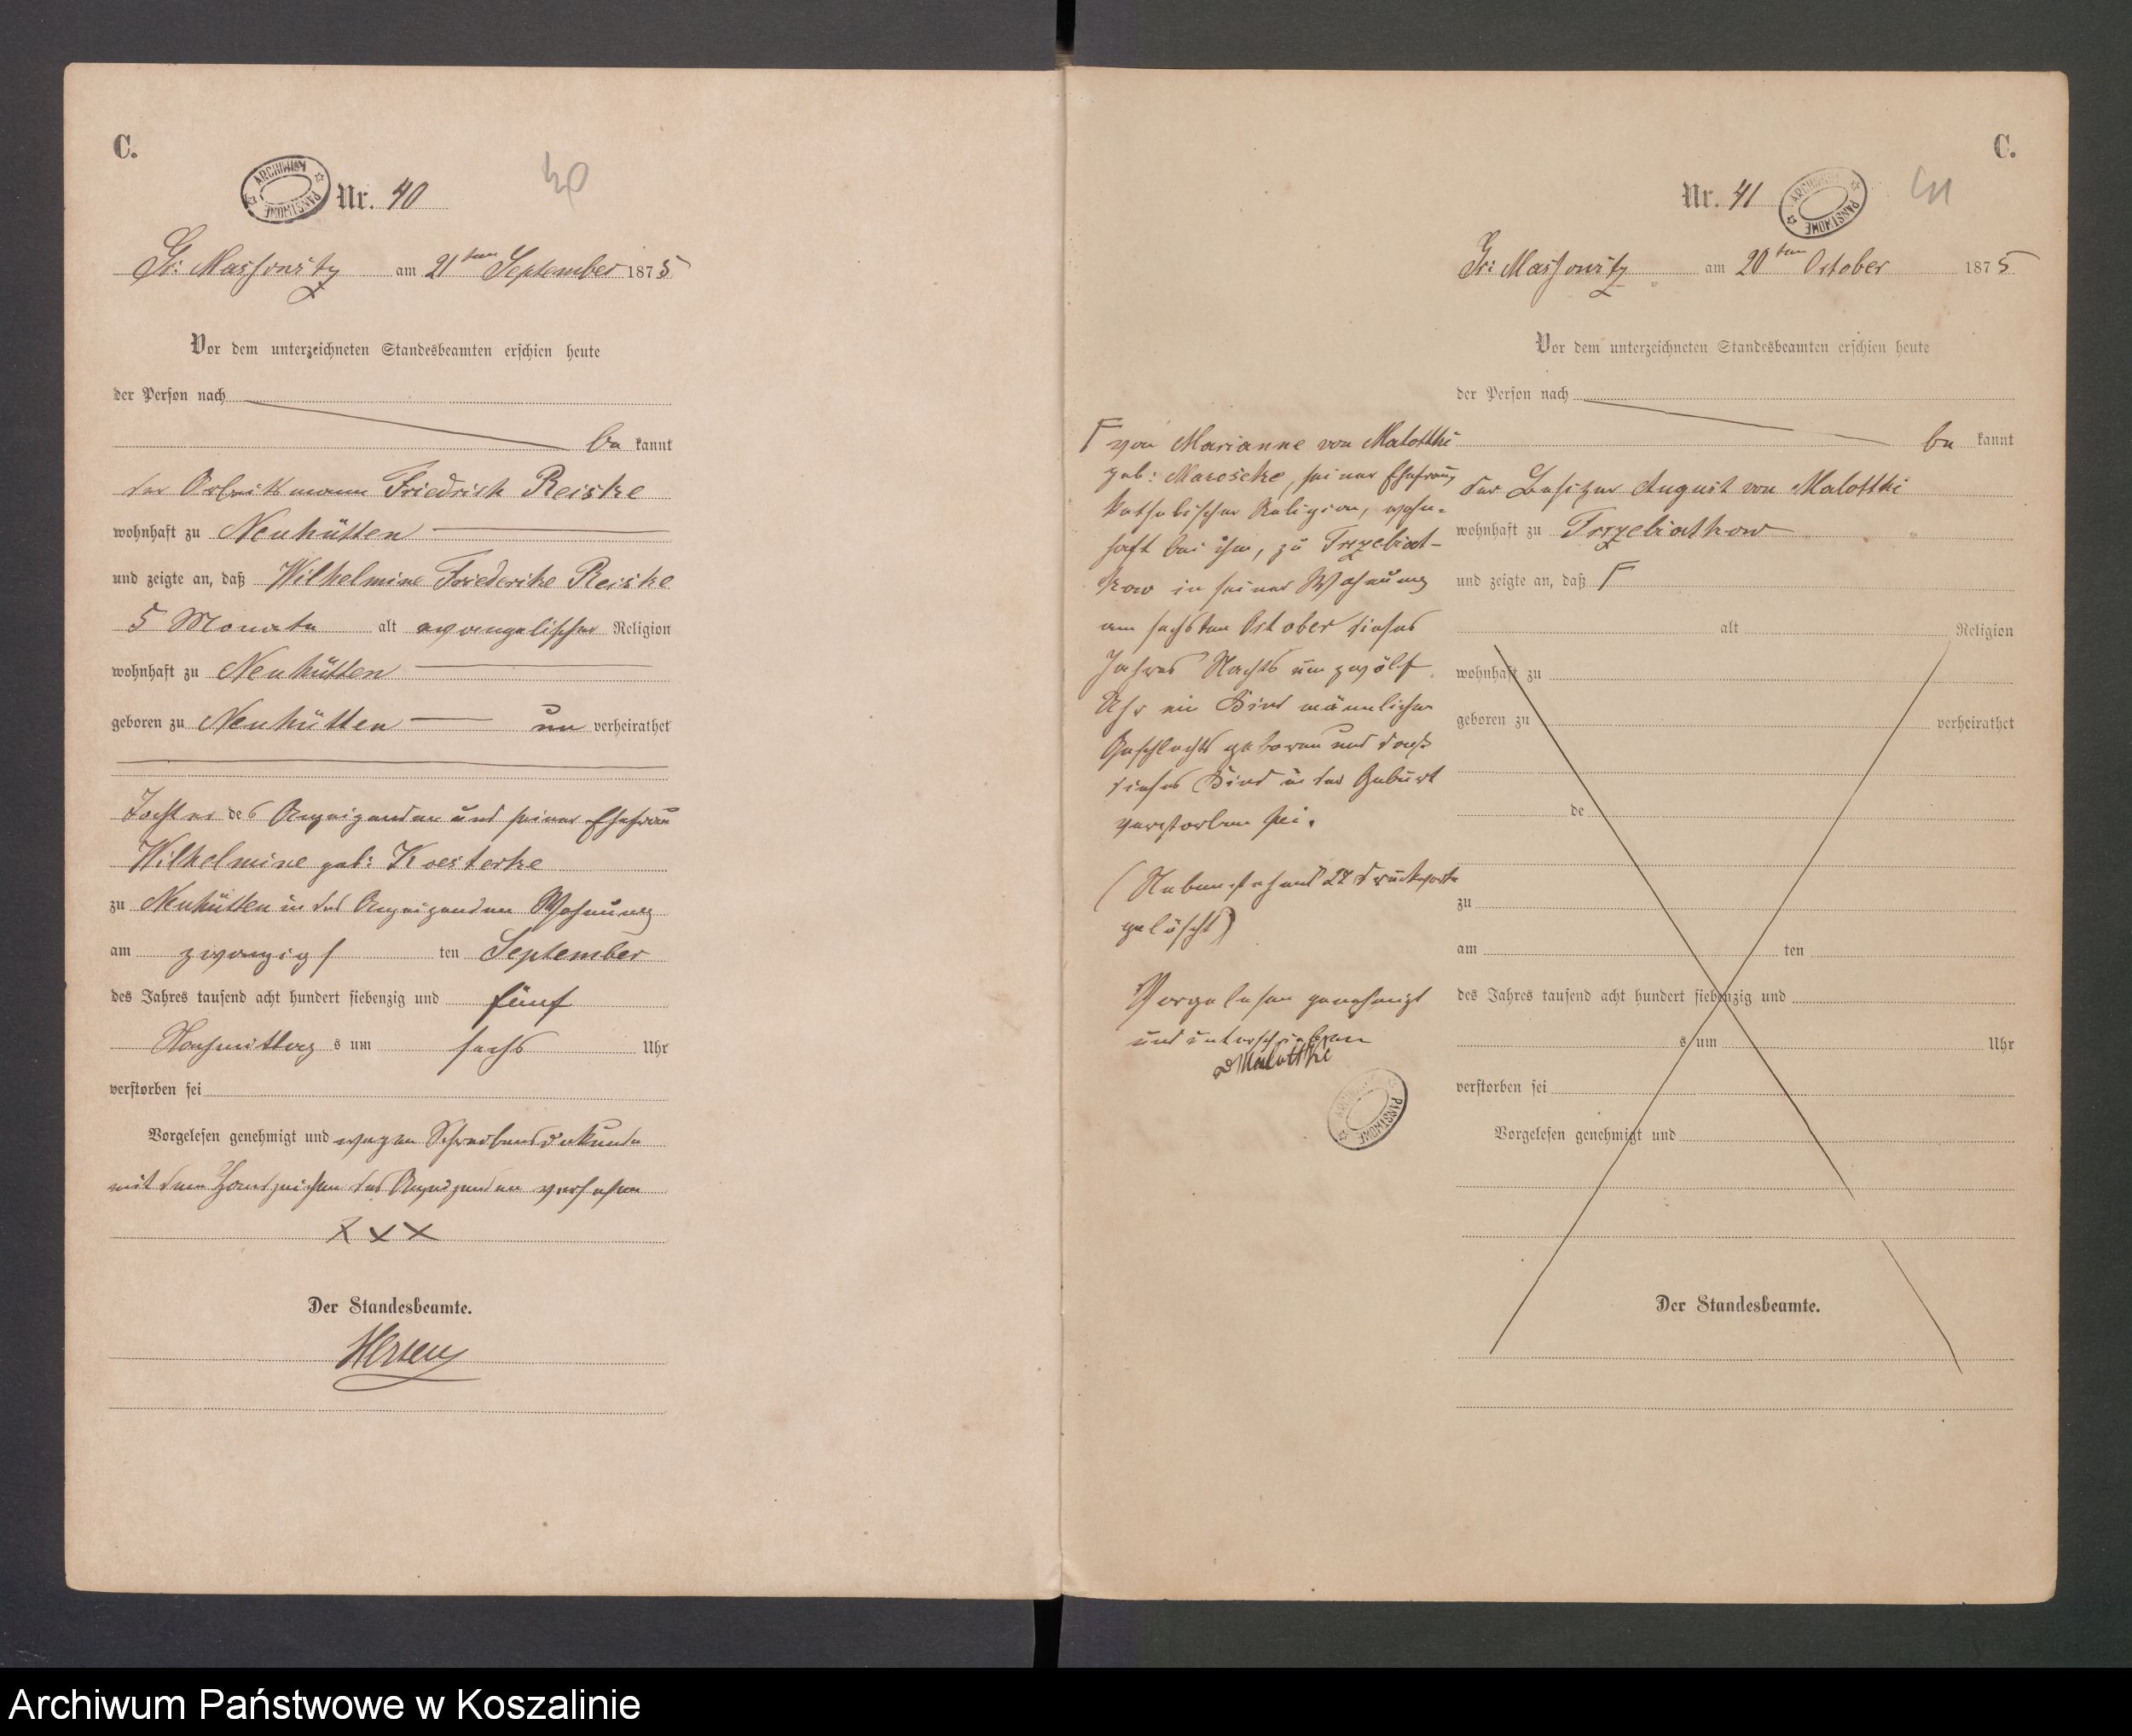 C.
Nr. 40
40
ARCHIWUM PAŃSTWOWE
Gr: Massowitz am 21ten September 1875
Vor dem unterzeichneten Standesbeamten erschien heute
der Person nach
be kannt
der Arbeitsmann Friedrich Reiske
wohnhaft zu Neuhütten
und zeigte an, daß Wilhelmine Friederike Reiske
5 Monate alt evangelischer Religion
wohnhaft zu Neuhütten
geboren zu Neuhütten un verheirathet
Tochter des Anzeigenden und seiner Ehefrau
Wilhelmine geb: Koesterke
zu Neuhütten in des Anzeigenden Wohnung
am zwanzigs ten September
des Jahres tausend acht hundert siebenzig und fünf
Nachmittag s um sechs Uhr
verstorben sei
Vorgelesen genehmigt und wegen Schreibensunkunde
mit dem Handzeichen des Anzeigenden versehen
XXX
Der Standesbeamte.
C.
Nr. 41
41
ARCHIWUM PAŃSTWOWE
Gr: Massowitz am 20ten October 1875
Vor dem unterzeichneten Standesbeamten erschien heute
der Person nach
be kannt
der Besitzer August von Malottki
wohnhaft zu Trzebiatkow
und zeigte an, daß Γ
alt Religion
wohnhaft zu
geboren zu verheirathet
de
zu
am ten
des Jahres tausend acht hundert siebenzig und
s um Uhr
verstorben sei
Vorgelesen genehmigt und
Der Standesbeamte.
Γ von Marianne von Malottki
geb: Maroschke, seiner Ehefrau,
katholischer Religion, wohn-
haft bei ihm, zu Trzebiat-
kow in seiner Wohnung
am sechsten October dieses
Jahres Nachts um zwölf
Uhr ein Kind männlichen
Geschlechts geboren und daß
dieses Kind in der Geburt
verstorben sei.
(Nebenstehend 27 Druckworte
gelöscht)
Vorgelesen genehmigt
und unterschrieben
v Malottki
ARCHIWUM PAŃSTWOWE
Archiwum Państwowe w Koszalinie